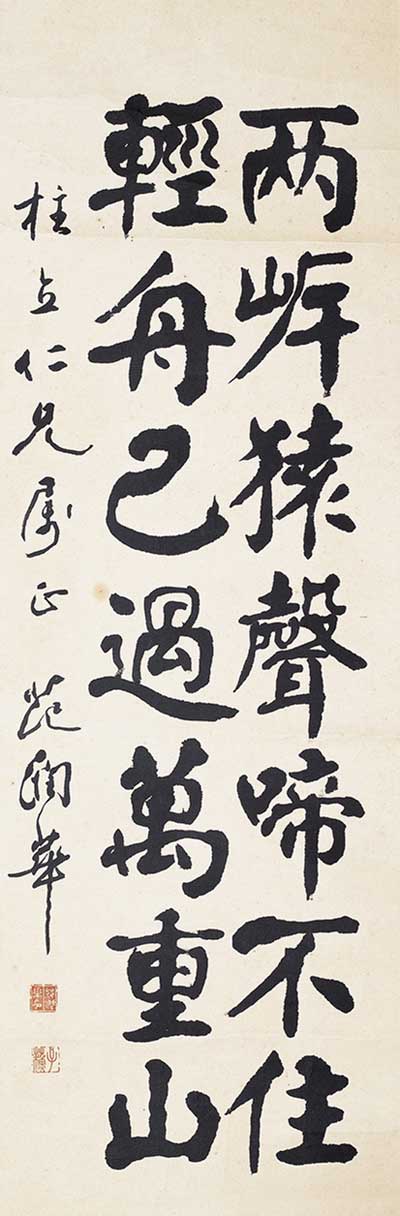 两岸猿聲啼不住
輕舟已過萬重山
柱立仁兄属正 范润華